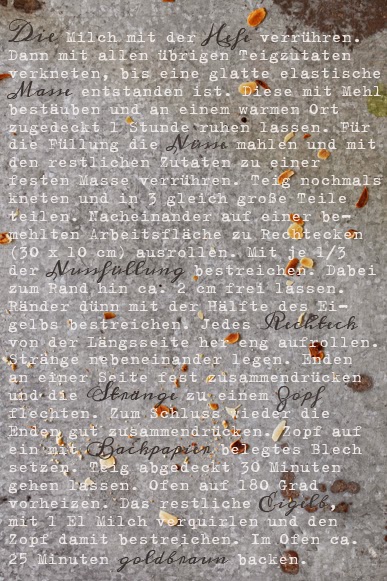 Die Milch mit der Hefe verrühren.
Dann mit allen übrigen Teigzutaten
verkneten, bis eine glatte elastische
Masse entstanden ist. Diese mit Mehl
bestäuben und an einem warmen Ort
zugedeckt 1 Stunde ruhen lassen. Für
die Füllung die Nüsse mahlen und mit
den restlichen Zutaten zu einer
festen Masse verrühren. Teig nochmals
kneten und in 3 gleich große Teile
teilen. Nacheinander auf einer be-
mehlten Arbeitsfläche zu Rechtecken
(30 x 10 cm) ausrollen. Mit je 1/3
der Nussfüllung bestreichen. Dabei
zum Rand hin ca. 2 cm frei lassen.
Ränder dünn mit der Hälfte des Ei-
gelbs bestreichen. Jedes Rechteck
von der Längsseite her eng aufrollen.
Stränge nebeneinander legen. Enden
an einer Seite fest zusammendrücken
und die Stränge zu einem Zopf
flechten. Zum Schluss wieder die
Enden gut zusammendrücken. Zopf auf
ein mit Backpapier belegtes Blech
setzen. Teig abgedeckt 30 Minuten
gehen lassen. Ofen auf 180 Grad
vorheizen. Das restliche Eigelb,
mit 1 El Milch verquirlen und den
Zopf damit bestreichen. Im Ofen ca.
25 Minuten goldbraun backen.